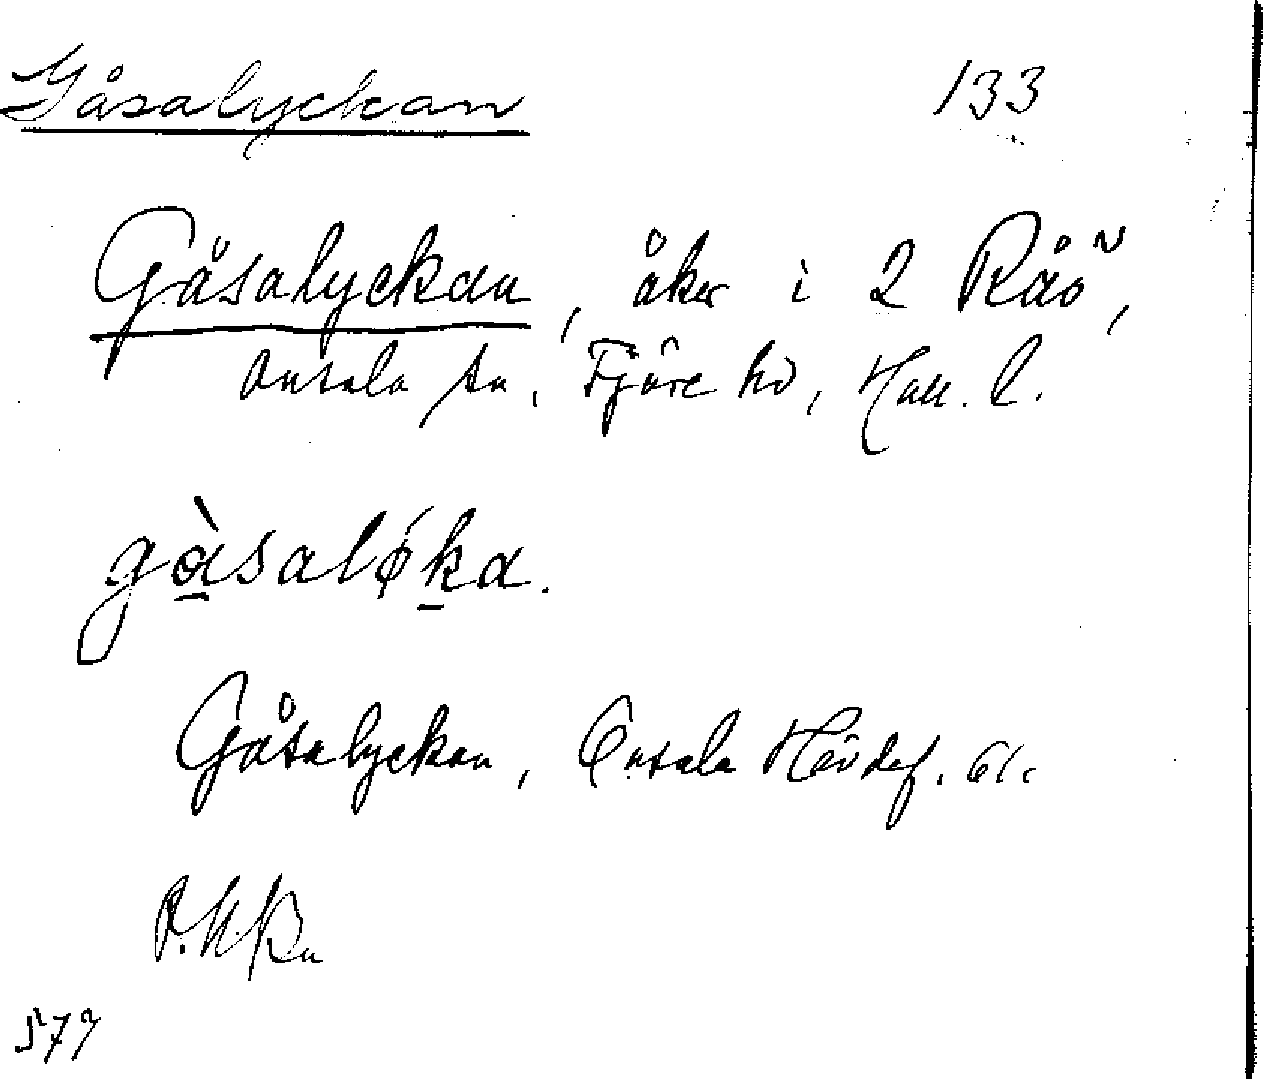 Gåsalyckan 133
Gåsalyckan, åker i 2 Råö,
Onsala sn, Fjäre hd, Hall. l.
gàsaløka.
Gåsalyckan, Onsala Hävdef. 61.
577